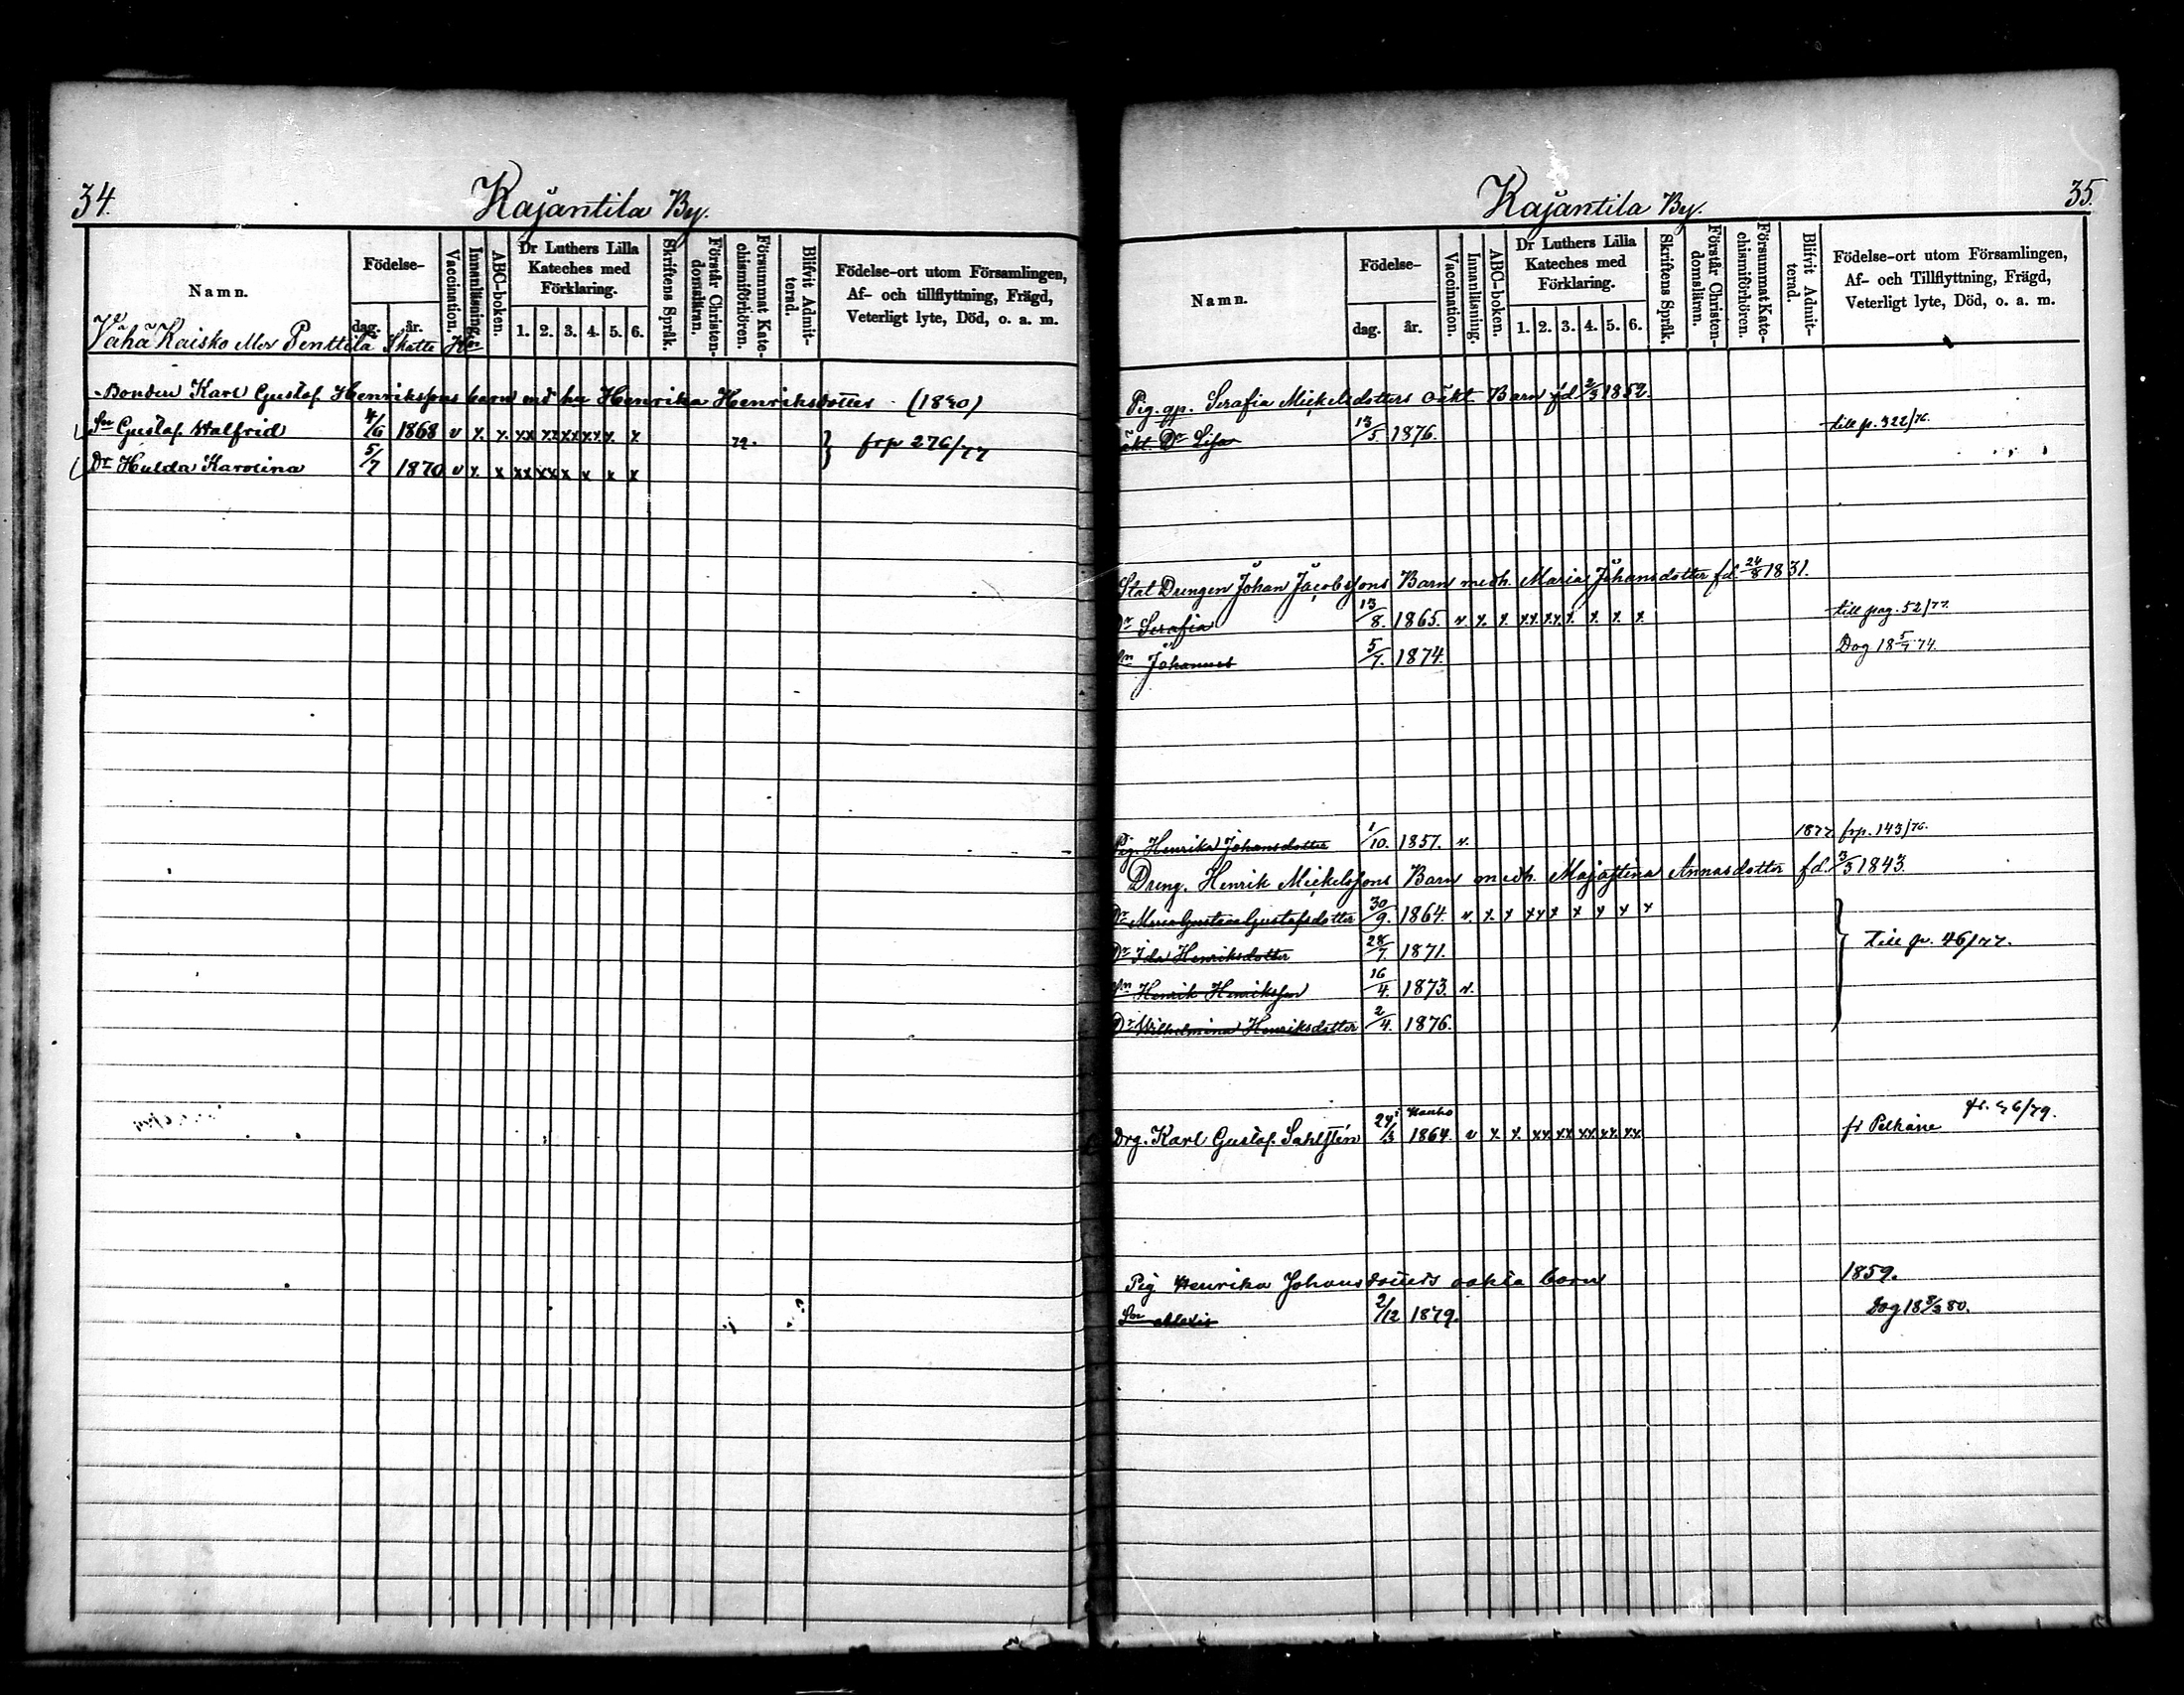 34.
Kajantila By.
Namn.
Födelse-
dag.
år.
Vaccination.
Innanläsning.
ABC-boken.
Dr Luthers Lilla Kateches med Förklaring.
1. 2. 3. 4. 5. 6.
Skriftens Språk.
Förstår Christen-domsläran.
Försummat Kate-chismiförhören.
Blifvit Admit-terad.
Födelse-ort utom Församlingen, Af- och tillflyttning, Frägd, Veterligt lyte, Död, o. a. m.
Vähä Kaisko eller Penttilä Skatte
Bonden Karl Gustaf Henrikssons barn med hu Henrika Henriksdotter
Sn Gustaf Walfrid 4/6 1868 v x x xx xx xx xx x x frp 276/77
Dr Hulda Karolina 5/7 1870 v x x xx xx x x x x
35.
Kajantila By.
Namn.
Födelse-
dag.
år.
Vaccination.
Innanläsning.
ABC-boken.
Dr Luthers Lilla Kateches med Förklaring.
1. 2. 3. 4. 5. 6.
Skriftens Språk.
Förstår Christen-domsläran.
Försummat Kate-chismiförhören.
Blifvit Admit-terad.
Födelse-ort utom Församlingen, Af- och Tillflyttning, Frägd, Veterligt lyte, Död, o. a. m.
Pig. gp. Serafia Mickelsdotters oäkt Barn fd. 1852.
äkt. Dr Lisa 13/5 1876. till p. 322/76.
Stat Drengen Johan Jacobssons Barn medh. Maria Johansdotter fd. 24/8 1831.
Dr Serafia 13/8. 1865. v. x x xx xx x x x x till pag. 52/77.
Sn Johannes 5/7. 1874. Dog 18 5/7 74.
Pig. Henrika Johansdotter 1/10. 1857. v. 1877 frp. 143/76.
Dreng. Henrik Mickelssons Barn medh. Majastina Annasdotter fd. 3/3 1843.
Dr Maria Gustava Gustafsdotter 30/9. 1864. v. x x xx x x x x x
Dr Ida Henriksdotter 28/7. 1871. till p. 46/77.
Sn Henrik Henriksson 16/4. 1873. v.
Dr Wilhelmina Henriksdotter 2/4. 1876.
Drg. Karl Gustaf Sahlstén 24/3 Hauho 1864. v x x. xx xx xx xx xx xx fr Pelkäne
Pig Henrika Johansdotters oäkta barn 1859.
Sn Alexis 2/12 1879. Dog 18 8/3 80.